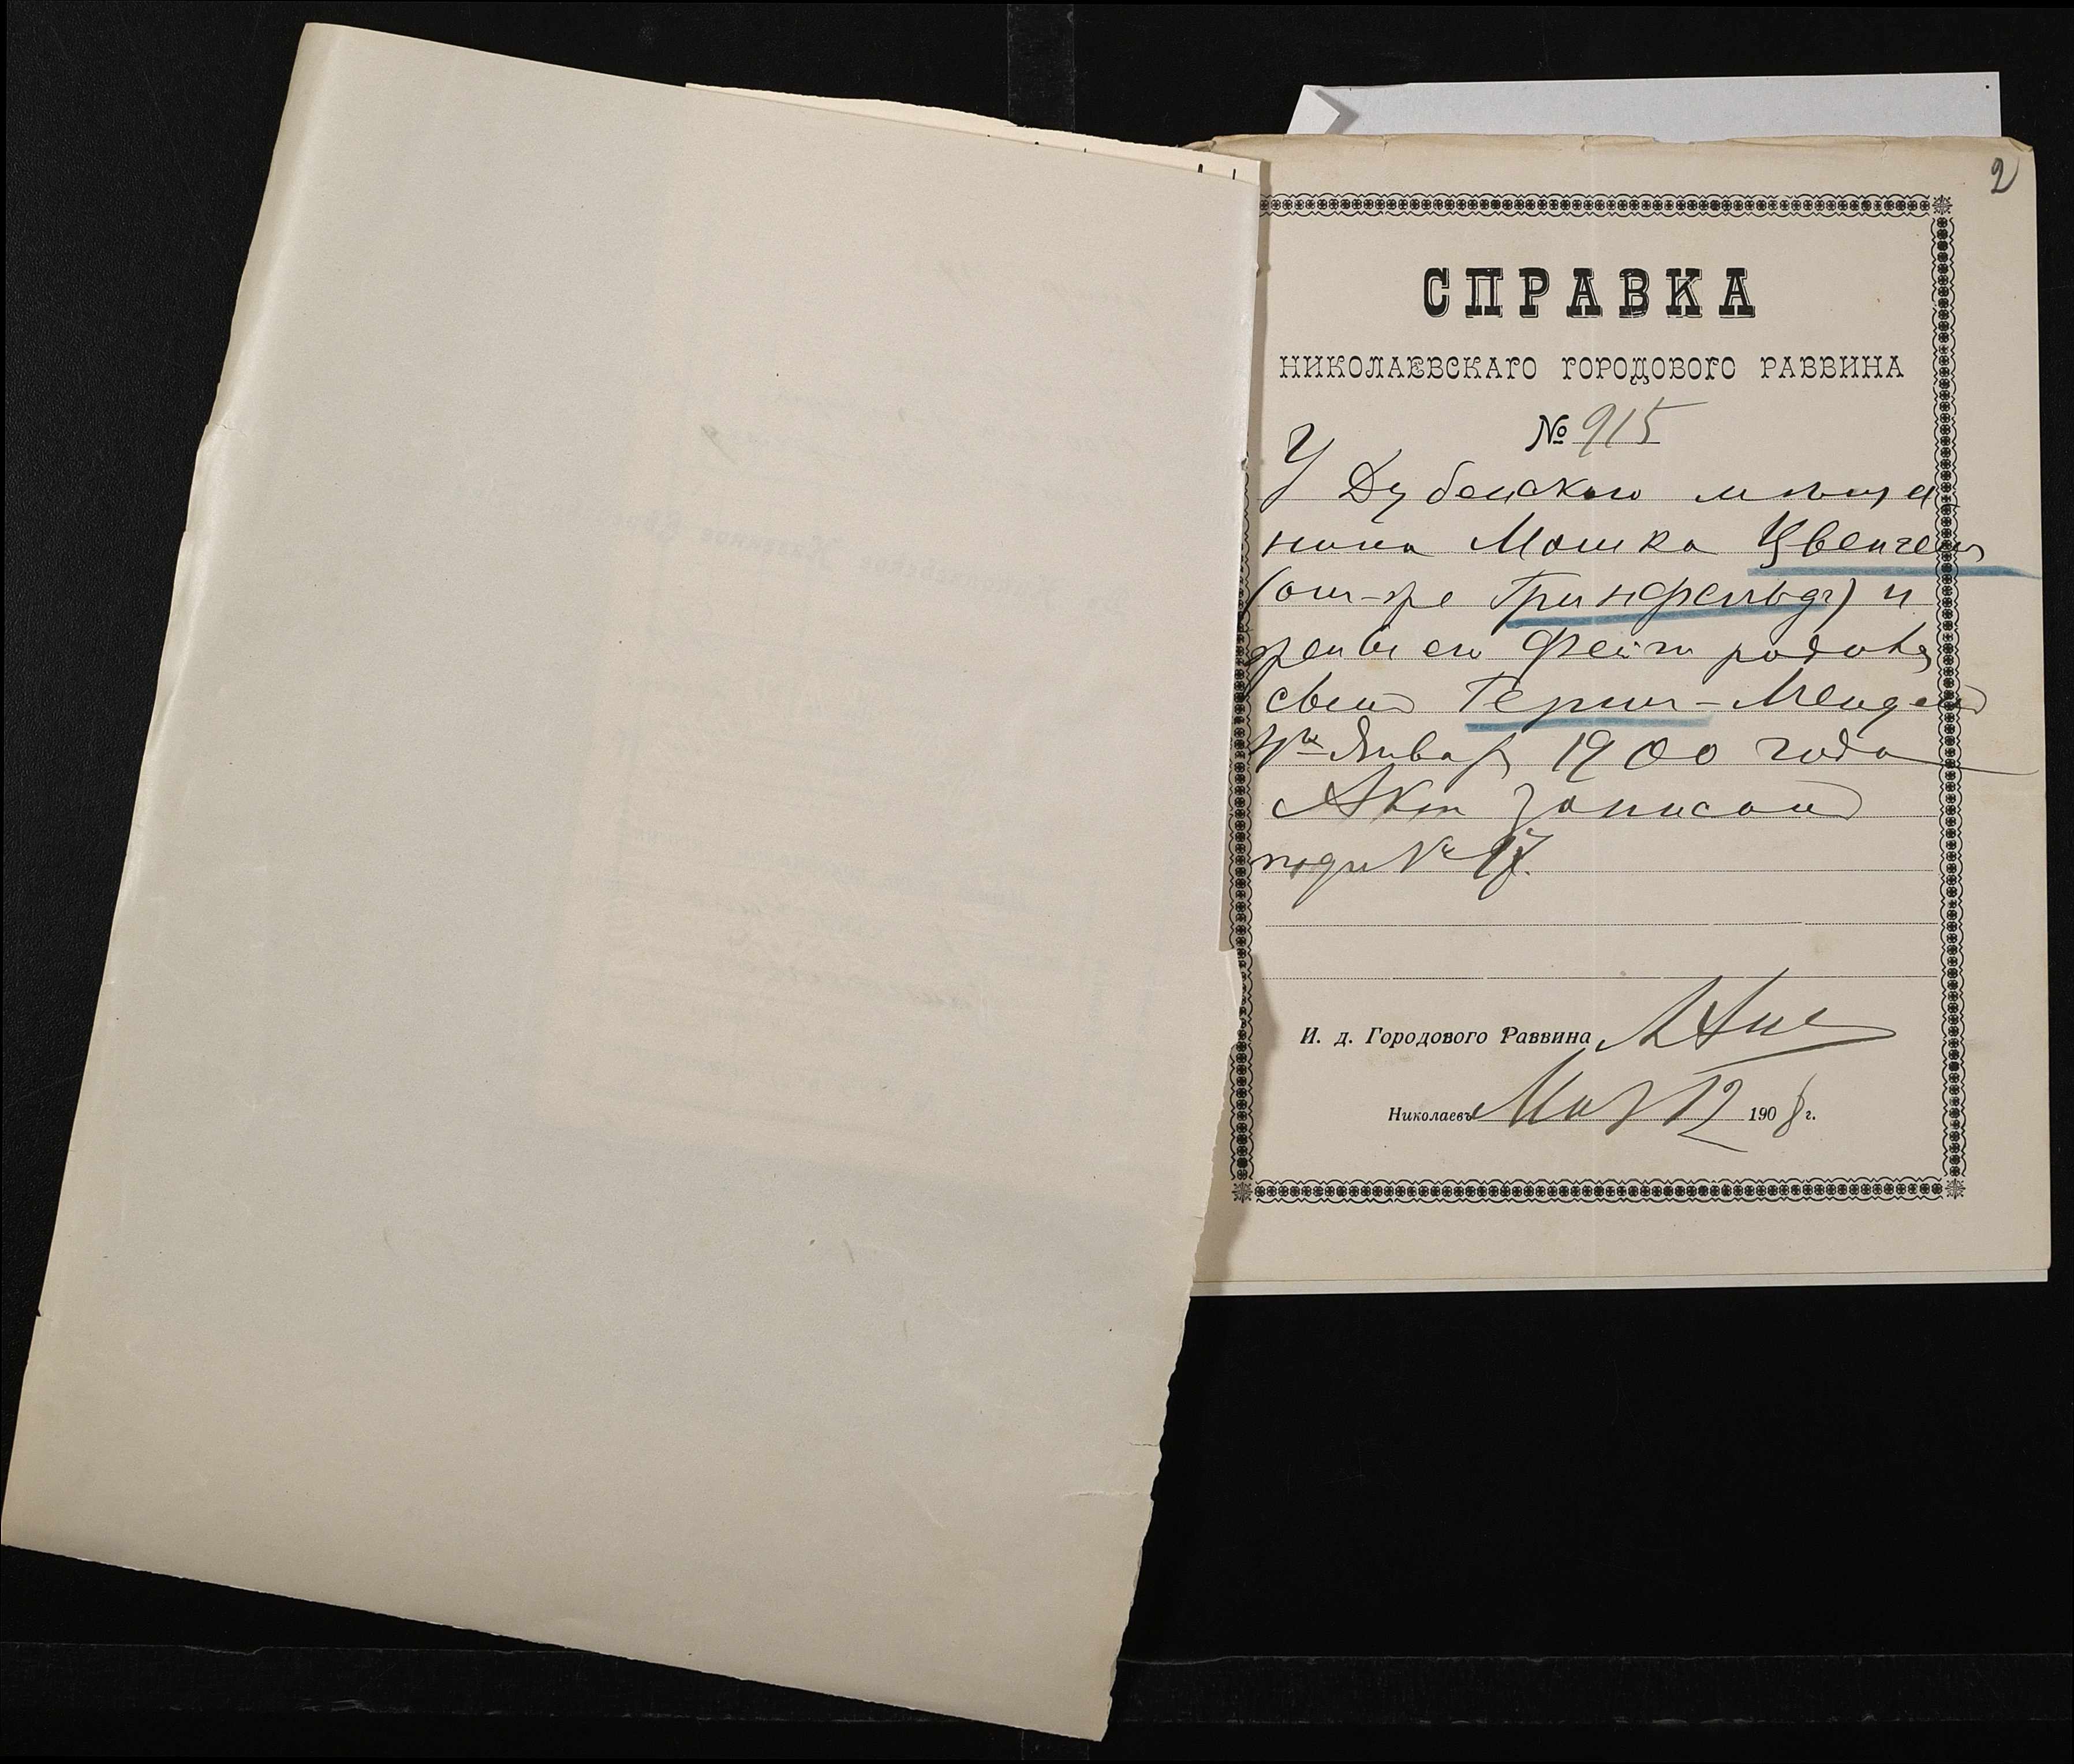 2
СПРАВКА
НИКОЛАЕВСКАГО ГОРОДОВОГО РАВВИНА
№ 915
У Дубенскаго мѣща
нина Мошка Цвенгель
(он-же Гринфельдъ) и
жены его Фейги родил
сынъ Герш-Мендель
Январ 1900 года
Актъ записанъ
подъ № 17.
И. д. Городового Раввина
Николаевъ 12 1908 г.